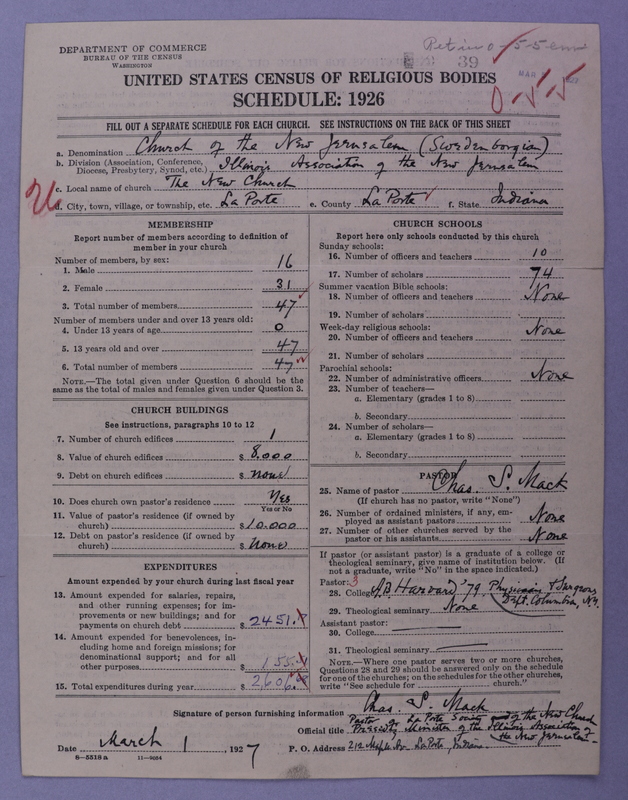 Petino-55 emw
DEPARTMENT OF COMMERCE
BUREAU OF THE CENSUS
WASHINGTON
39
MAR
UNITED STATES CENSUS OF RELIGIOUS BODIES
SCHEDULE: 1926
0-55
FILL OUT A SEPARATE SCHEDULE FOR EACH CHURCH. SEE INSTRUCTIONS ON THE BACK OF THIS SHEET
a. Denomination Church of the New Jerusalem (Swedenborgian)
b. Division (Association, Conference, Diocese, Presbytery, Synod, etc.) Illinois Association of the New Jerusalem
c. Local name of church The New Church
d. City, town, village, or township, etc. La Porte e. County La Porte f. State Indiana
MEMBERSHIP
Report number of members according to definition of
member in your church
Number of members, by sex:
1. Male 16
2. Female 31
3. Total number of members 47
Number of members under and over 13 years old:
4. Under 13 years of age 0
5. 13 years old and over 47
6. Total number of members 47
NOTE.—The total given under Question 6 should be the
same as the total of males and females given under Question 3.
CHURCH BUILDINGS
See instructions, paragraphs 10 to 12
7. Number of church edifices 1
8. Value of church edifices $ 8.000
9. Debt on church edifices $ none
10. Does church own pastor's residence Yes
Yes or No
11. Value of pastor's residence (if owned by
church) $ 10.000
12. Debt on pastor's residence (if owned by
church) $ none
EXPENDITURES
Amount expended by your church during last fiscal year
13. Amount expended for salaries, repairs,
and other running expenses; for im-
provements or new buildings; and for
payments on church debt $ 2451.
14. Amount expended for benevolences, in-
cluding home and foreign missions; for
denominational support; and for all
other purposes $ 155.
15. Total expenditures during year $ 2,606.
CHURCH SCHOOLS
Report here only schools conducted by this church
Sunday schools:
16. Number of officers and teachers 10
17. Number of scholars 74
Summer vacation Bible schools:
18. Number of officers and teachers None
19. Number of scholars
Week-day religious schools:
20. Number of officers and teachers None
21. Number of scholars
Parochial schools:
22. Number of administrative officers None
23. Number of teachers—
a. Elementary (grades 1 to 8)
b. Secondary
24. Number of scholars—
a. Elementary (grades 1 to 8)
b. Secondary
PASTOR
25. Name of pastor Chas. S. Mack
(If church has no pastor, write "None")
26. Number of ordained ministers, if any, em-
ployed as assistant pastors None
27. Number of other churches served by the
pastor or his assistants None
If pastor (or assistant pastor) is a graduate of a college or
theological seminary, give name of institution below. (If
not a graduate, write "No" in the space indicated.)
Pastor: 3
28. College AB Harvard '79, Physicians & Surgeons
Dept. Columbia, N.Y.
29. Theological seminary None
Assistant pastor:
30. College
31. Theological seminary
NOTE.—Where one pastor serves two or more churches,
Questions 28 and 29 should be answered only on the schedule
for one of the churches; on the schedules for the other churches,
write "See schedule for church."
Signature of person furnishing information Chas. S. Mack
Pastor of La Porte Society of the New Church
Official title Presiding Minister of the Illinois Association of
the New Jerusalem
Date March 1, 1927 P. O. Address 212 Maple Av. La Porte, Indiana
6—5518 a 11—9034